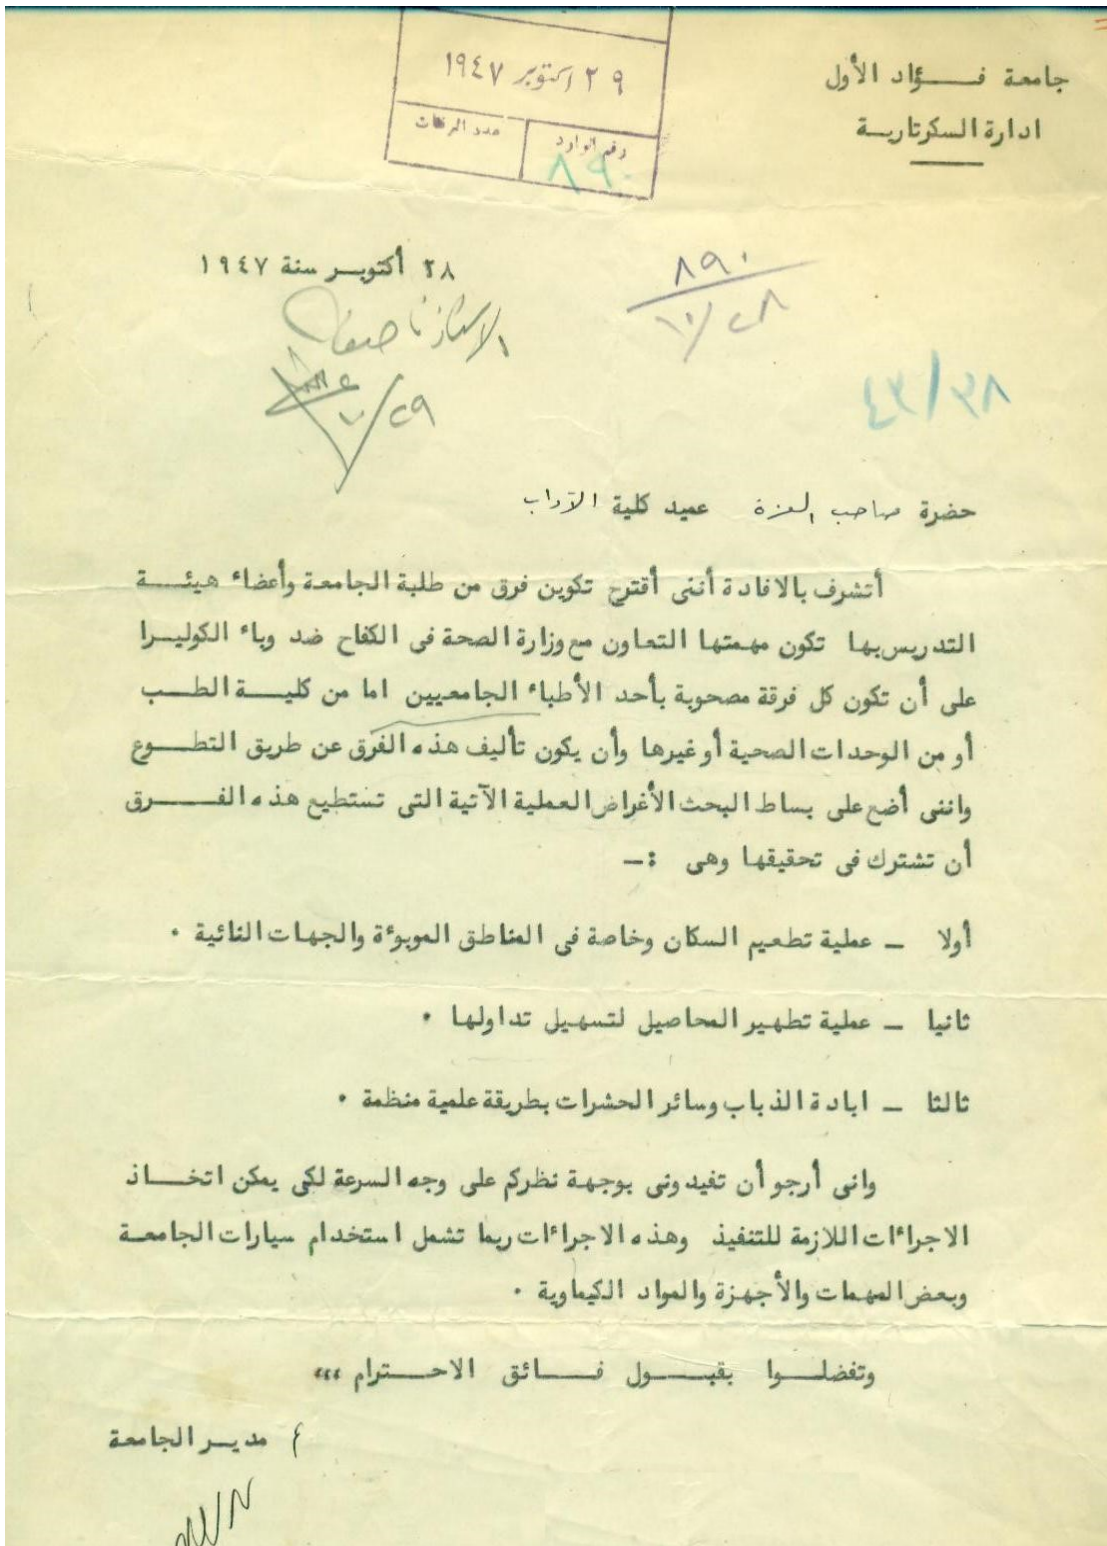 جامعة فــؤاد الأول
ادارة السكرتارية
٢٩ اكتوبر ١٩٤٧
رقم الوارد
عدد المرفقات
٨٩٠
٢٨ أكتوبـر سنة ١٩٤٧
٨٩٠
٢٨/١٠
الاستاذ ناصف
٢٩/١٠
٤٣/٣٨
حضرة صاحب العزة عميد كلية الآداب
أتشرف بالافادة أننى أقترح تكوين فرق من طلبة الجامعة وأعضاء هيئــة
التدريس بها تكون مهمتها التعاون مع وزارة الصحة فى الكفاح ضد وباء الكوليـرا
على أن تكون كل فرقة مصحوبة بأحد الأطباء الجامعيين اما من كليــة الطــب
أو من الوحدات الصحية أو غيرها وأن يكون تأليف هذه الفرق عن طريق التطــوع
واننى أضع على بساط البحث الأغراض العملية الآتية التى تستطيع هذه الفــرق
أن تشترك فى تحقيقها وهى :ـ
أولا ـ عملية تطعيم السكان وخاصة فى المناطق الموبوءة والجهات النائية .
ثانيا ـ عملية تطهير المحاصيل لتسهيل تداولها .
ثالثا ـ ابادة الذباب وسائر الحشرات بطريقة علمية منظمة .
وانى أرجو أن تفيدونى بوجهة نظركم على وجه السرعة لكى يمكن اتخــاذ
الاجراءات اللازمة للتنفيذ وهذه الاجراءات ربما تشمل استخدام سيارات الجامعة
وبعض المهمات والأجهزة والمواد الكيماوية .
وتفضلــوا بقبــول فــائق الاحــترام ،،،
مديــر الجامعة